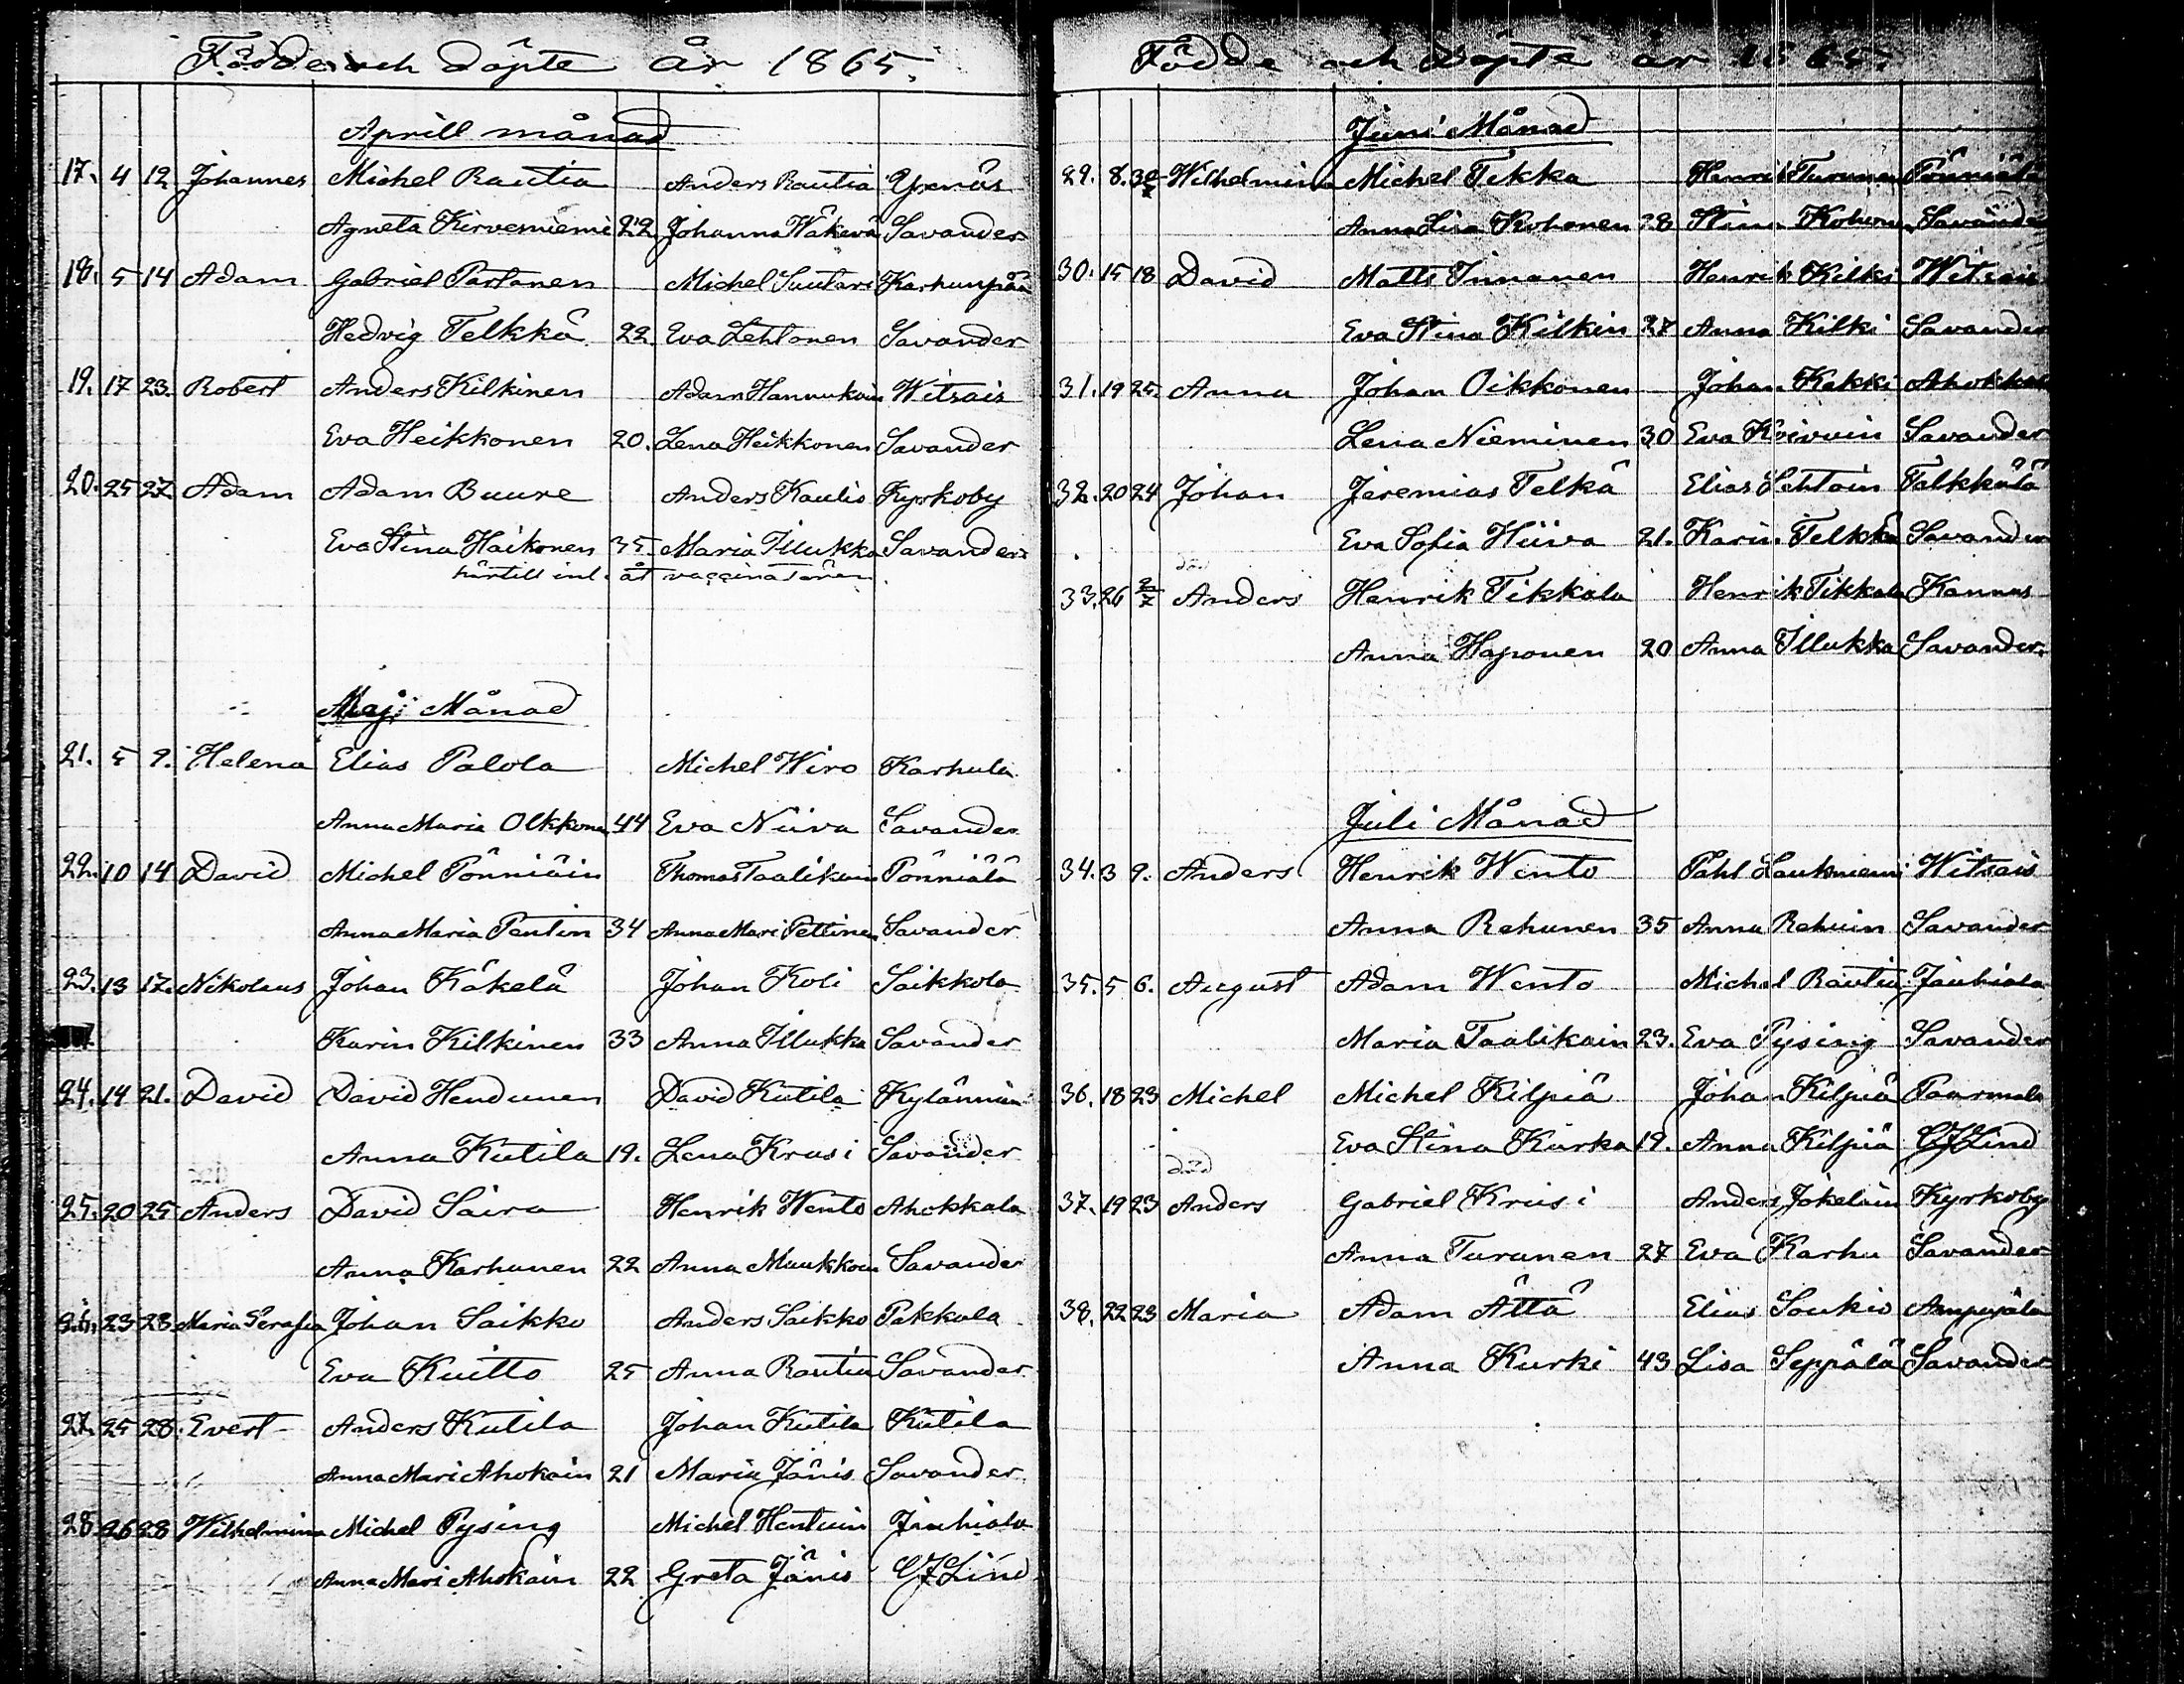 Födde och döpte år 1865.
Aprill månad
17. 4 12 Johannes Michel Rautia Anders Rautia Yxnäs
Agneta Kirvesniemi 22 Johanna Wäkevä Savander
18. 5 14 Adam Gabriel Partanen Michel Suutari Karhunpää
Hedvig Telkkä 22. Eva Lehtonen Savander
19. 17 23. Robert Anders Kilkinen Adam Hannukain Witsais
Eva Heikkonen 20. Lena Heikkonen Savander
20. 25 27 Adam Adam Buure Anders Kaulio Kyrkoby
Eva Stina Häikonen 35. Maria Illukka Savander
härtill inl. åt vaccinatören
Maji Månad
21. 5 9. Helena Elias Palola Michel Wiro Karhula
Anna Maria Olkkonen 44 Eva Niiva Savander
22. 10 14 David Michel Pönniäin Thomas Taalikain Pönniälä
Anna Maria Pentin 34 Anna Mari Pettinen Savander
23. 13 17. Nikolaus Johan Käkelä Johan Koli Saikkola
Karin Kilkinen 33 Anna Illukka Savander
24. 14 21. David David Hendunen David Kutila Kylänniin
Anna Kutila 19. Lena Krusi Savander
25. 20 25 Anders David Saira Henrik Wento Ahokkala
Anna Karhunen 22 Anna Muukkoin Savander
26. 23 28 Maria Serafia Johan Saikko Anders Saikko Pakkala
Eva Kuitto 25 Anna Rautia Savander
27. 25 28. Evert Anders Kutila Johan Kutila Kutila
Anna Mari Ahokain 21 Maria Jänis Savander
28 26 28 Wilhelmina Michel Pysing Michel Hentuin Jauhiala
Anna Mari Ahokain 22 Greta Jänis CJLind
Födde och döpte år 1865.
Juni Månad
29. 8. 30 Wilhelmina Michel Tekka Henrik Turunen Pönniälä
Anna Lisa Kohonen 28 Stina Kohonen Savander
30. 15 18 David Matts Innanen Henrik Kilki Witsais
Eva Stina Kilkin 27 Anna Kilki Savander
31. 19 25. Anna Johan Oikkonen Johan Kekki Ahokkala
Lena Nieminen 30 Eva Koivuin Savander
32. 20 24 Johan Jeremias Telkä Elias Lehtoin Talkkälä
Eva Sofia Hiiva 21. Karin Telkkä Savander
död
33. 26 2/7 Anders Henrik Tikkala Henrik Tikkala Kannus
Anna Haponen 20 Anna Illukka Savander
Juli Månad
34. 3 9. Anders Henrik Wento Pahl Laukniemi Witsais
Anna Rehunen 35 Anna Rehuin Savander
35. 5 6. August Adam Wento Michel Rautia Jauhiala
Maria Taalikain 23. Eva Pysing Savander
36. 18 23 Michel Michel Kilpiä Johan Kilpiä Paarmala
Eva Stina Kurka 19. Anna Kilpiä CJLind
död
37. 19 23 Anders Gabriel Krusi Anders Jokelain Kyrkoby
Anna Turunen 27 Eva Karhu Savander
38. 22 23 Maria Adam Ättä Elias Soukio Ampujala
Anna Kurki 43 Lisa Seppälä Savander